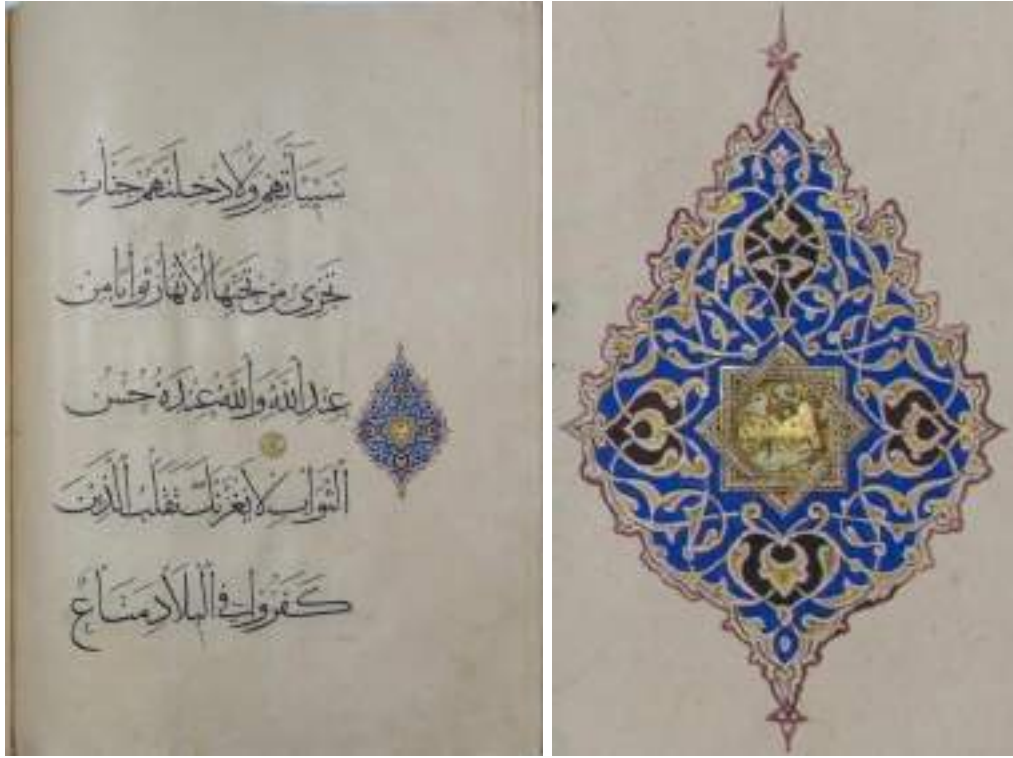 سيئاتهم ولأدخلنهم جنات
تجري من تحتها الأنهار ثوابا من
عند الله والله عنده حسن
الثواب لا يغرنك تقلب الذين
كفروا في البلاد متاع